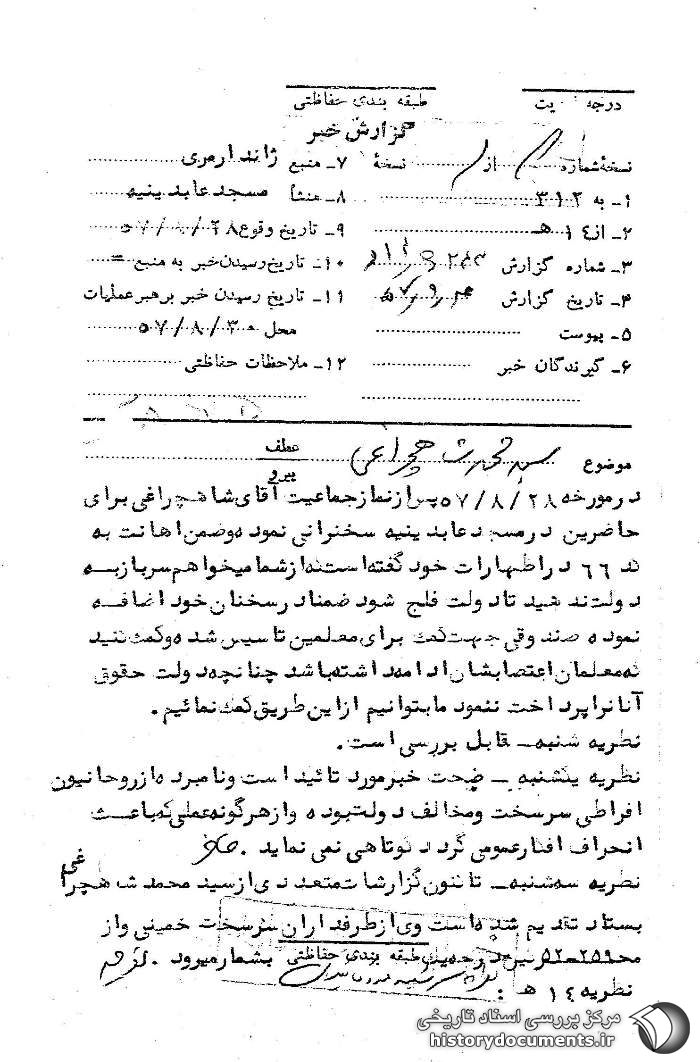 درجه یت طبقه بندی حفاظتی
گزارش خبر
نسخهٔ شماره از نسخهٔ
۷ـ منبع ژاندارمری
۱ـ به ۳۱۲
۸ـ منشأ مسجد عابدینیه
۲ـ از ۱۴ هـ
۹ـ تاریخ وقوع ۵۷/۸/۲۸
۳ـ شماره گزارش
۱۰ـ تاریخ رسیدن خبر به منبع =
۴ـ تاریخ گزارش
۱۱ـ تاریخ رسیدن خبر برهبر عملیات
۵ـ پیوست
محل ۵۷/۸/۳۰
۶ـ گیرندگان خبر
۱۲ـ ملاحظات حفاظتی
موضوع سید محمد شاهچراغی
عطف
پیرو
درمورخه ۵۷/۸/۲۸ پس از نماز جماعیت آقای شاهچراغی برای
حاضرین درمسجد عابدینیه سخنرانی نموده وضمن اهانت به
۶۶ در اظهارات خود گفته است که از شما میخواهم سرباز به
دولت ندهید تا دولت فلج شود ضمنا در سخنان خود اضافه
نموده صندوقی جهت کمک برای معلمین تاسیس شده و کمک کنید
که معلمان اعتصابشان ادامه داشته باشد چنانچه دولت حقوق
آنانرا پرداخت ننمود ما بتوانیم از این طریق کمک نمائیم.
نظریه شنبه ـ قابل بررسی است.
نظریه یکشنبه ـ صحت خبر مورد تائید است ونامبرده از روحانیون
افراطی سرسخت ومخالف دولت بوده واز هرگونه عملی که باعث
انحراف افکار عمومی گردد کوتاهی نمی نماید.
نظریه سه شنبه ـ تاکنون گزارشات متعددی از سید محمد شاهچراغی
بستاد تقدیم شده است وی از طرفداران سرسخت خمینی واز
بشمار میرود.
طبقه بندی حفاظتی
نظریه ۱۴ هـ :
مرکز بررسی اسناد تاریخی
historydocuments.ir